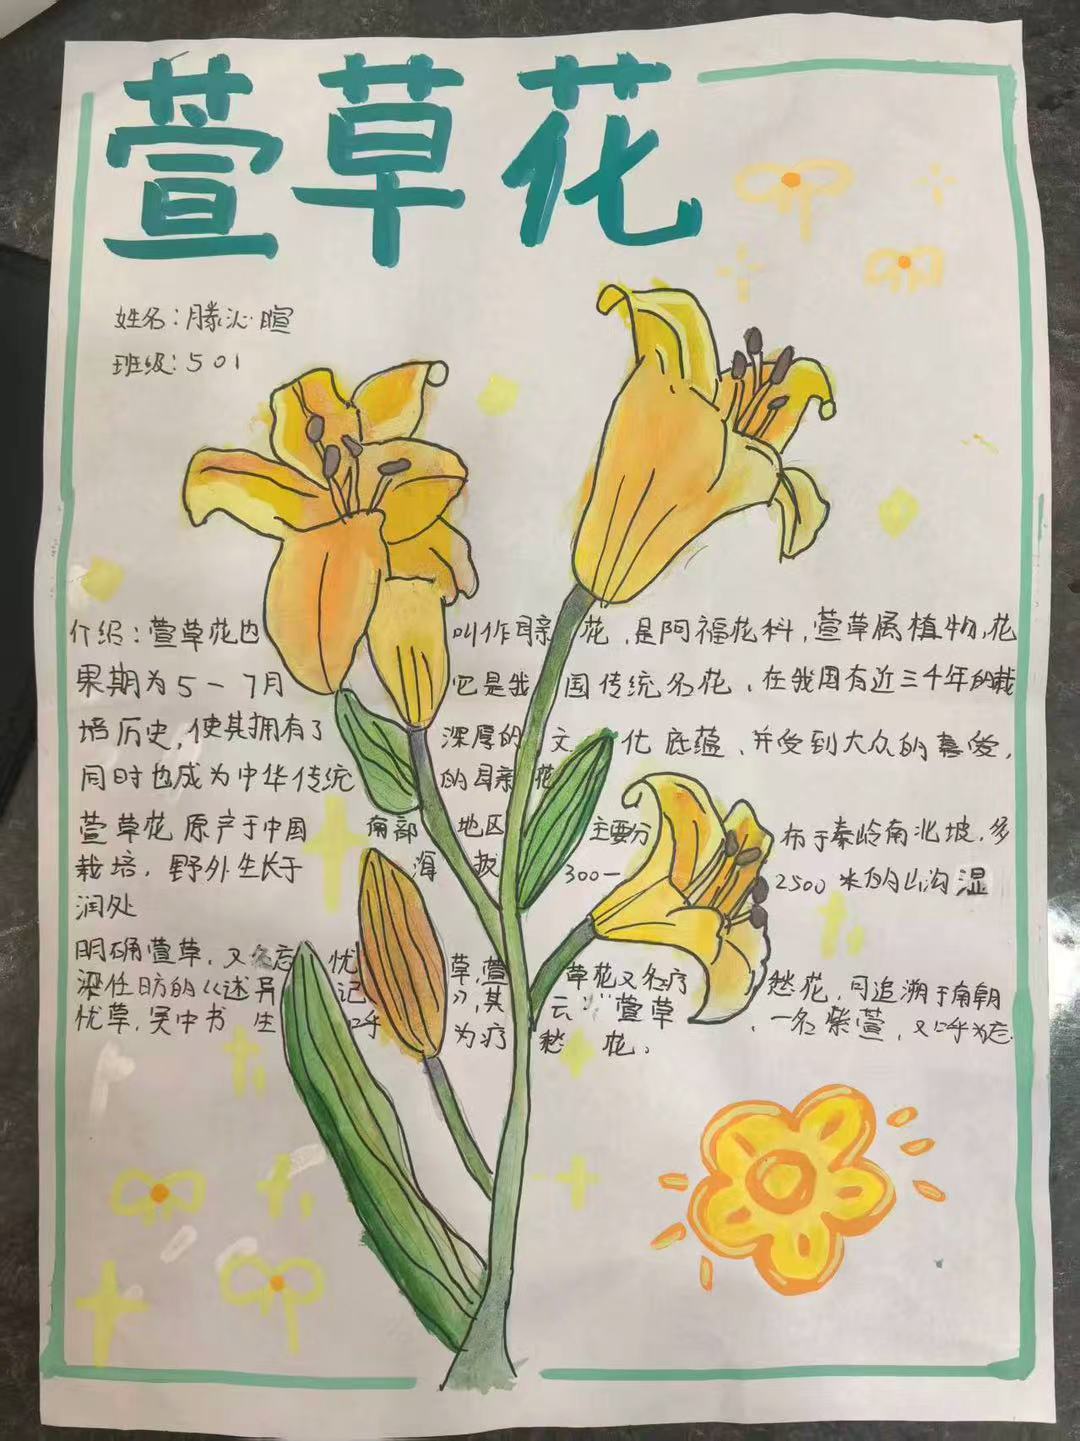 萱草花
姓名:滕沁暄
班级:501
介绍:萱草花也叫作母亲花,是阿福花科,萱草属植物,花
果期为5-7月它是我国传统名花、在我国有近三千年的栽
培历史,使其拥有了深厚的文化底蕴、并受到大众的喜爱,
同时也成为中华传统的母亲花
萱草花原产于中国南部地区主要分布于秦岭南北坡,多
栽培,野外生长于海拔300-2500米的山沟湿
润处
明确萱草,又名忘忧草,萱草花又名疗愁花,可追溯于南朝
梁任昉的《述异记》,其云:"萱草、一名紫萱,又呼为忘
忧草,吴中书生呼为疗愁花。